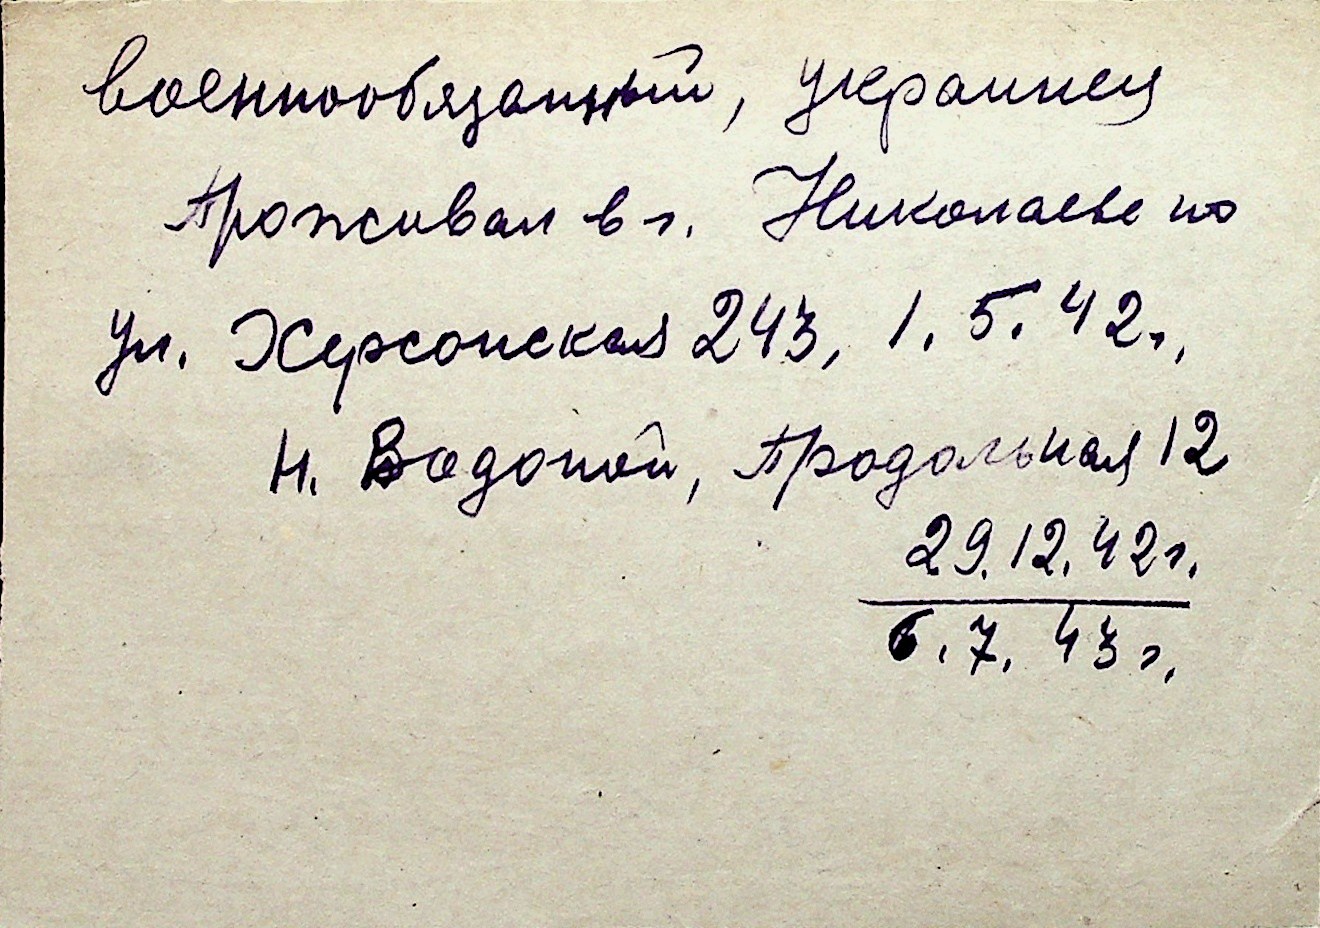 военнообязанный, украинец
Проживал в г. Николаеве по
ул. Херсонская 243, 1.5.42г.,
Н. Водопой, Продольная 12
29.12.42г.
6.7.43г.